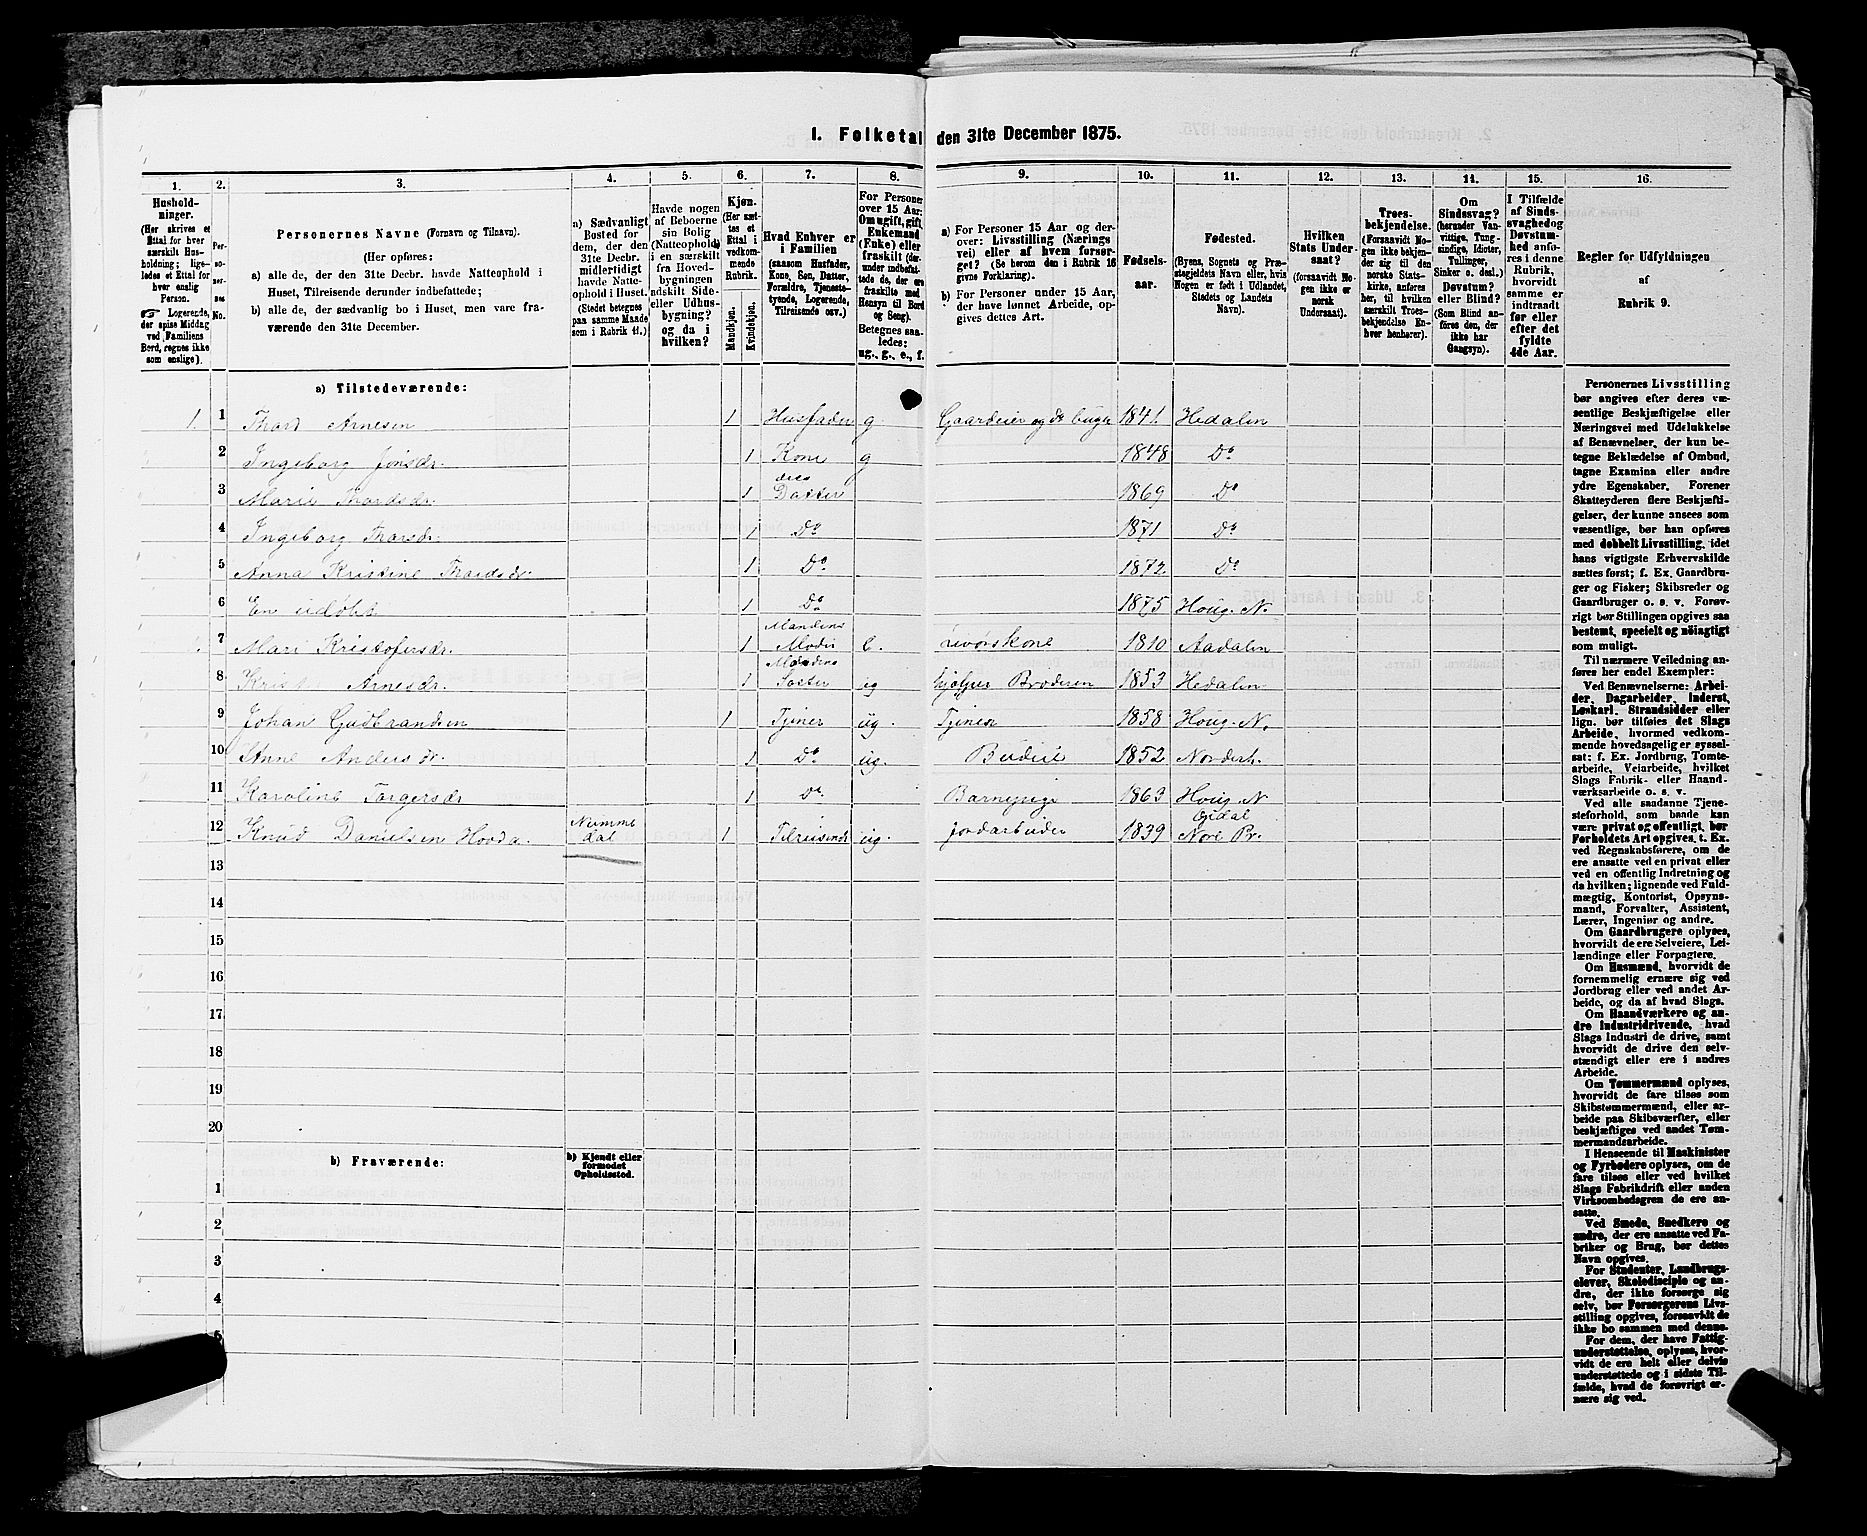 1. Folketal den 31te December 1875.
1. 2. 3. 4. 5. 6. 7. 8. 9. 10. 11. 12. 13. 14. 15. 16.
Hushold-
ninger.
(Her skrives et
Ettal for hver
særskilt Hus-
holdning; lige-
ledes et Ettal for
hver enslig
Person.
☞ Logerende,
der spise Middag
ved Familiens
Bord, regnes ikke
som enslige).
Per-
so-
ner-
nes
No.
Personernes Navne (Fornavn og Tilnavn).
(Her opføres:
a) alle de, der den 31te Decbr. havde Natteophold i
Huset, Tilreisende derunder indbefattede;
b) alle de, der sædvanlig bo i Huset, men vare fra-
værende den 31te December.
a) Sædvanligt
Bosted for
dem, der den
31te Decbr.
midlertidigt
havde Natte-
ophold i Huset.
(Stedet betegnes
paa samme Maade
som i Rubrik 11.)
Havde nogen
af Beboerne
sin Bolig
(Natteophold)
i en særskilt
fra Hoved-
bygningen
adskilt Side-
eller Udhus-
bygning?
og da i
hvilken?
Kjøn.
(Her sæt-
tes et
Ettal i
vedkom-
mende
Rubrik.
Mandkjøn.
Kvindekjøn.
Hvad Enhver er
i Familien
(saasom Husfader,
Kone, Søn, Datter,
Forældre, Tjeneste-
tyende, Logerende,
Tilreisende osv.)
For Personer
over 15 Aar:
Om ugift, gift,
Enkemand
(Enke) eller
fraskilt (der-
under indbefat-
tede de, der ere
fraskilte med
Hensyn til Bord
og Seng).
Betegnes saa-
ledes:
ug., g., e., f.
a) For Personer 15 Aar og der-
over: Livsstilling (Nærings-
vei) eller af hvem forsør-
get? (Se herom den i Rubrik 16
givne Forklaring).
b) For Personer under 15 Aar,
der have lønnet Arbeide, op-
gives dettes Art.
Fødsels-
aar.
Fødested.
(Byens, Sognets og Præ-
stegjeldets Navn eller, hvis
Nogen er født i Udlandet,
Stedets og Landets
Navn).
Hvilken
Stats Under-
saat?
(forsaavidt No-
gen ikke er
norsk
Undersaat).
Troes-
bekjendelse.
(Forsaavidt No-
gen ikke bekjen-
der sig til den
norske Stats-
kirke, anføres
her, til hvilken
særskilt Troes-
bekjendelse En-
hver henhører).
Om
Sindssvag?
(herunder Van-
vittige, Tung-
sindige, Idioter,
Tullinger,
Sinker o. desl.)
Døvstum?
eller Blind?
(Som Blind an-
føres den, der
ikke har
Gangsyn).
I Tilfælde
af Sinds-
svaghed og
Døvstum-
hed anfø-
res i denne
Rubrik,
hvorvidt
samme er
indtraadt
før eller
efter det
fyldte
4de Aar.
Regler for Udfyldningen
af
Rubrik 9.
a) Tilstedeværende:
1. 1 Thord Arnesen 1 Husfader g Gaardeier og dt bruger 1841 Hedalen
2 Ingeborg Jonsdr. 1 Kone g 1848 Do
3 Marie Thordsdr. 1 deres Datter 1869 Do
4 Ingeborg Thorsdr. 1 Do 1871 Do
5 Anna Kristine Thordsdr. 1 Do 1872 Do
6 En udøbt 1 Do 1875 Houg. N.
7 Mari Kristofersdr. 1 Mandens Moder e. 1810 Aadalen
8 Arnesdr. 1 Mandens Søster ug hjelper Broderen 1853 Hedalen
9 Johan Gudbrandsen 1 Tjener ug. Tjener 1858 Houg. N.
10 Anne Andersdr. 1 Do ug. Budeie 1852 Norderh.
11 Karoline Torgersdr 1 Do. Barnepige 1863 Houg. N
12 Knud Danielsen Hovda. Nummedal 1 Tilreisende ug. jordarbeider 1839 Nore Pr.
13
14
15
16
17
18
19
20
b) Fraværende:
b) Kjendt eller
formodet
Opholdssted.
1
2
3
4
5
Personernes Livsstilling
bør angives efter deres væ-
sentlige Beskjæftigelse eller
Næringsvei med Udelukkelse
af Benævnelser, der kun be-
tegne Beklædelse af Ombud,
tagne Examina eller andre
ydre Egenskaber. Forener
Skatteyderen flere Beskjæfti-
gelser, der kunne ansees som
væsentlige, bør han opføres
med dobbelt Livsstilling, idet
hans vigtigste Erhvervskilde
sættes først; f. Ex. Gaardbru-
ger og Fisker; Skibsreder og
Gaardbruger o. s. v. Forøv-
rigt bør Stillingen opgives saa
bestemt, specielt og nøiagtigt
som muligt.
Til nærmere Veiledning an-
føres her endel Exempler:
Ved Benævnelserne: Arbei-
der, Dagarbeider, Inderst,
Løskarl, Strandsidder eller
lign. bør tilføies det Slags
Arbeide, hvormed vedkom-
mende hovedsagelig er syssel-
sat: f. Ex. Jordbrug, Tomte-
arbeide, Veiarbeide, hvilket
Slags Fabrik- eller Haand-
værksarbeide o. s. v.
Ved alle saadanne Tjene-
steforhold, som baade kan
være privat og offentligt, bør
Forholdets Art opgives, t. Ex.
ved Regnskabsførere, om de
ere ansatte ved en privat eller
ved en offentlig Indretning og
da hvilken; lignende ved Fuld-
mægtig, Kontorist, Opsyns-
mand, Forvalter, Assistent,
Lærer, Ingeniør og andre.
Om Gaardbrugere oplyses,
hvorvidt de ere Selveiere, Lei-
lændinge eller Forpagtere.
Om Husmænd, hvorvidt de
fornemmelig ernære sig ved
Jordbrug eller ved andet Ar-
beide, og da af hvad Slags.
Om Haandværkere og an-
dre industridrivende, hvad
Slags Industri de drive, samt
hvorvidt de drive den selv-
stændigt eller ere i andres
Arbeide.
Om Tømmermænd oplyses,
hvorvidt de fare tilsøs som
Skibstømmermænd, eller ar-
beide paa Skibsværfter, eller
beskjæftiges ved andet Tøm-
mermandsarbeide.
I Henseende til Maskinister
og Fyrbødere oplyses, om de
fare tilsøs eller ved hvilket
Slags Fabrikdrift eller anden
Virksomhedsgren de ere an-
satte.
Ved Smede, Snedkere og
andre, der ere ansatte ved Fa-
briker og Brug, bør dettes
Navn opgives.
For Studenter, Landbrugs-
elever, Skoledisciple og an-
dre, der ikke forsørge sig
selv, bør Forsørgerens Livs-
stilling opgives, forsaavidt de
ikke bo sammen med denne.
For dem, der have Fattig-
understøttelse, oplyses, hvor-
vidt de ere helt eller delvis
understøttede og i sidste Til-
fælde, hvad de forøvrigt er-
nære sig ved.